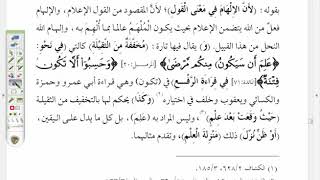 بقوله: (لأنّ الإلهامَ في معنَى القولِ)؟ لأنّ المقصود من القول الإعلام، والإلهام
فعلٌ من الله يتضمن الإعلام بحيث يكون المُلْهَم عالما بما أُلْهِمَ به، وإلهام الله
النحل من هذا القبيل. (و) يقال فيها تارة: (مُخَفَّفَةٌ مِنَ الثَّقِيلَةِ) كالتي (في نَحْوِ:
﴿عَلِمَ أَن سَيَكُونُ مِنكُم مَّرْضَىٰ﴾ [المزمل: ٢٠] ﴿وَحَسِبُوٓا أَلَّا تَكُونَ
فِتْنَةٌ﴾ [المائدة: ٧١] في قِراءَةِ الرَّفْعِ) في (تكون) وهي قراءة أبي عمرو وحمزة
والكسائي ويعقوب وخلف في اختياره (وَكَذَا) يحكم لها بالتخفيف من الثقيلة
(حَيْثُ وَقَعَتْ بَعْدَ عِلْمٍ) وليس المراد به (علم)، بل كل ما يدل على اليقين،
(أَوْ ظَنٍّ نُزِّلَ) ذلك (مَنْزِلَةَ العِلْمِ)، وتقدم مثالهما.
(١) الكشاف ٦٢٨/٢، ١٨٥/٣.